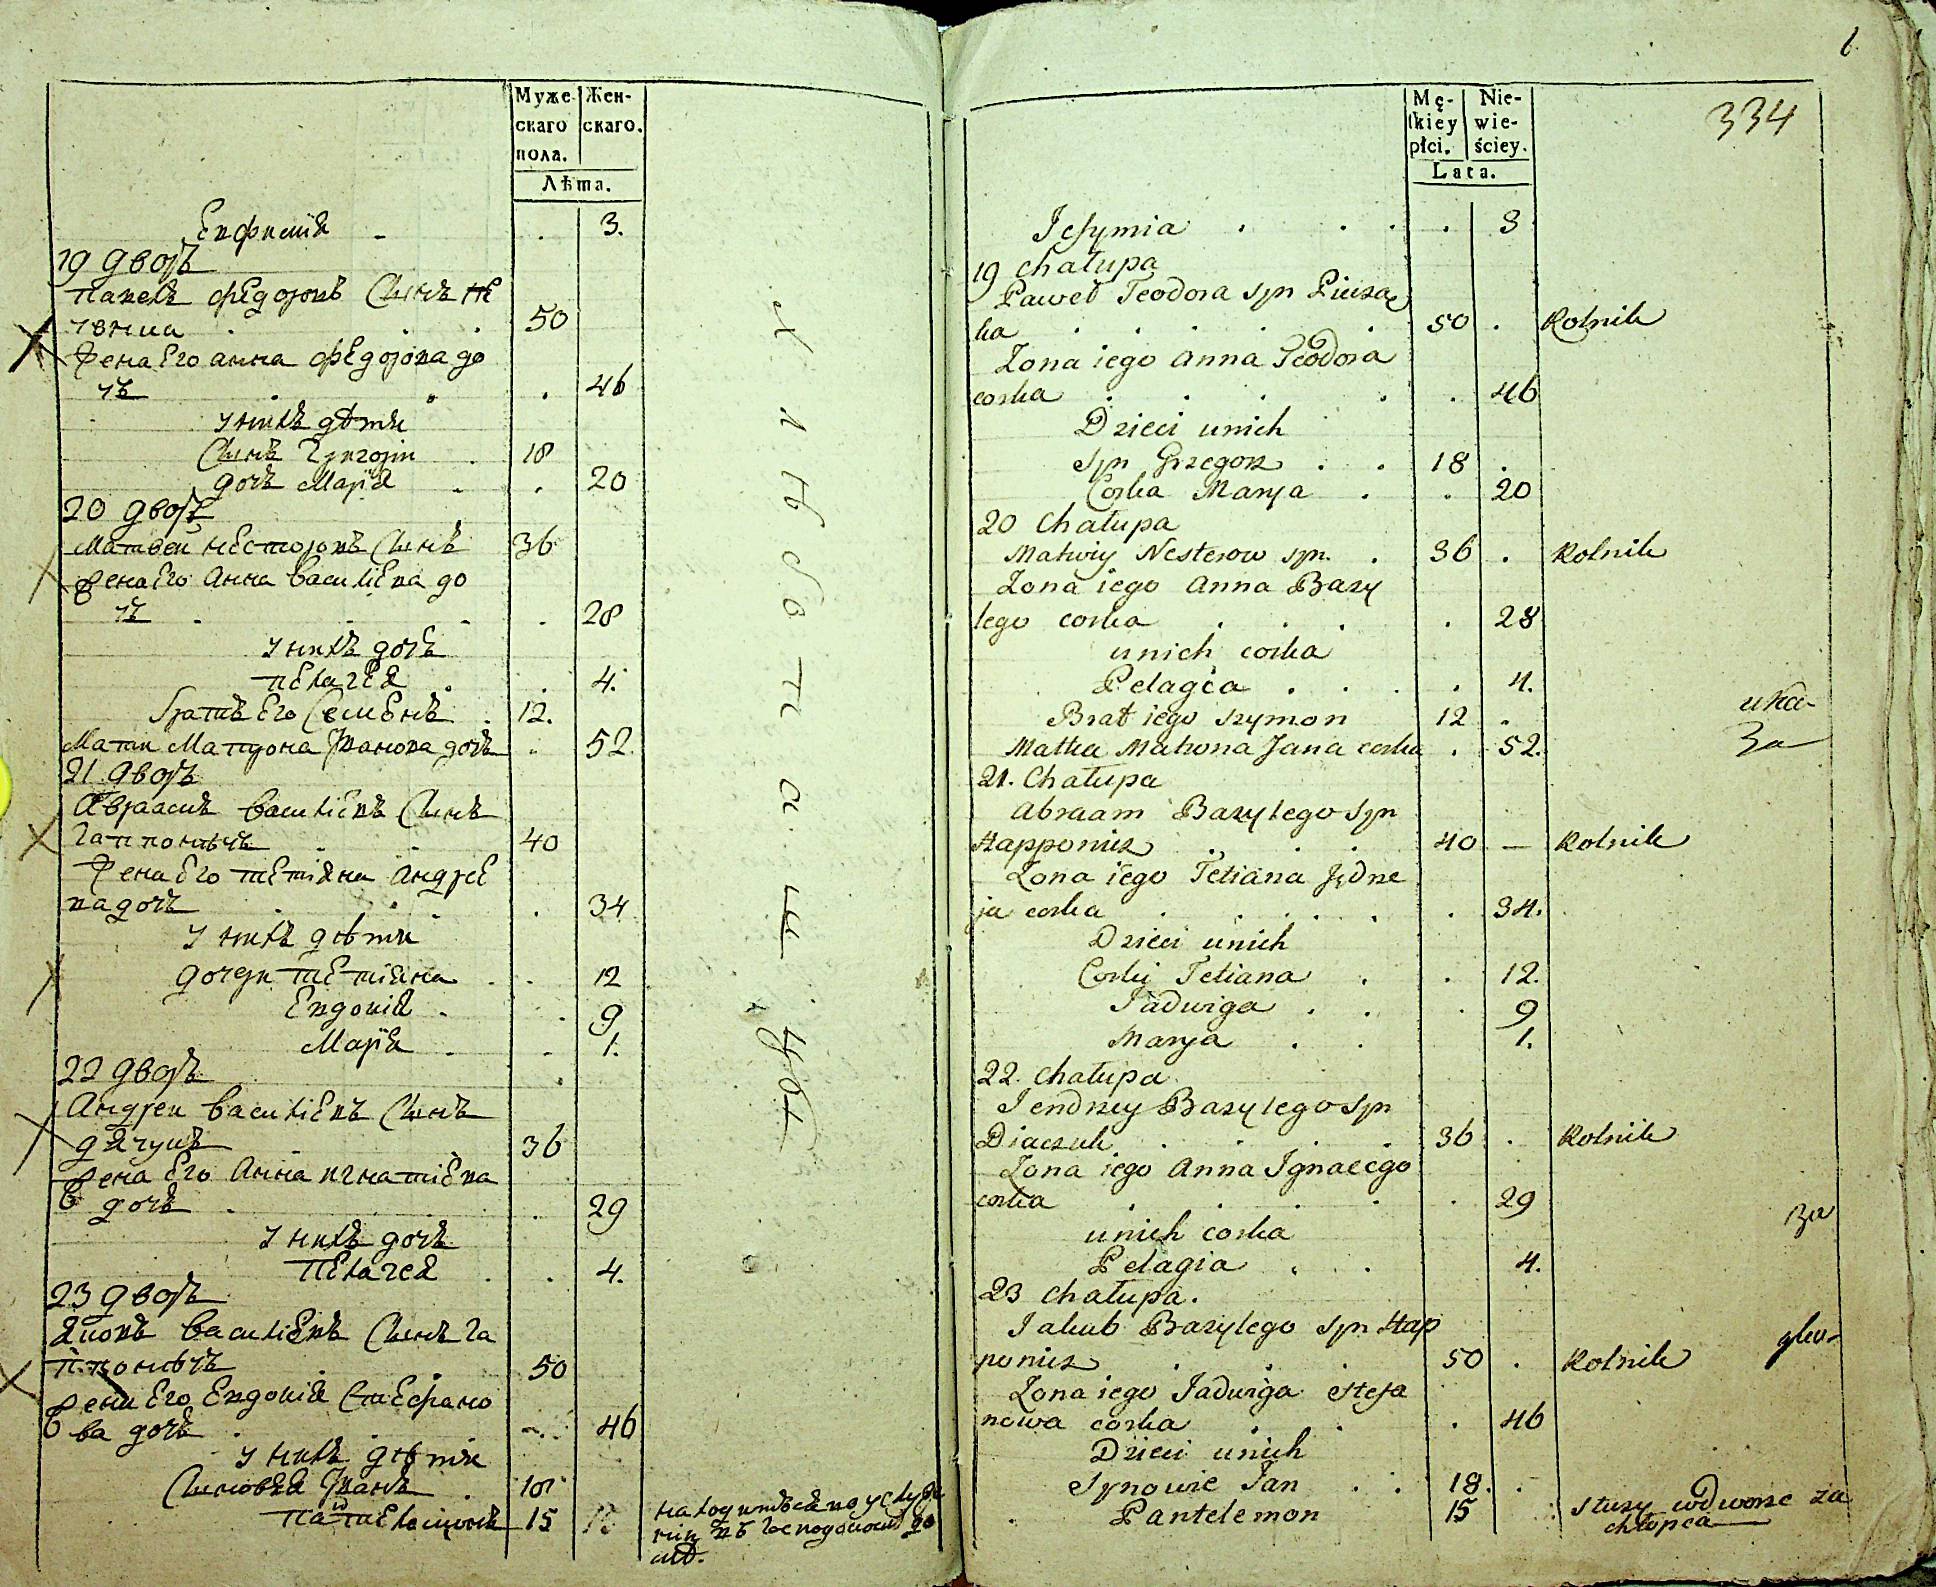 Муже
скаго
пола.
Жен-
скаго.
Лѣта.
Евфимія 3.
19 дворъ
Павелъ Федоровъ Сынъ Пе
чвниа 50
Жена Его анна Федорова до
чь 46
У нихъ дѣти
Сынъ Григорiи 18
дочь Марія 20
20 дворъ
Матвей Несторовъ Сынъ 36
Жена Его Анна Василіева до
чь 28
У нихъ дочь
Пелагея 4.
братъ Его Семенъ 12.
Мати Матрона Иванова дочь 52
21 дворъ
Авраамъ Василіевъ Сынъ
Гаппоновичъ 40
Жена Его Тетіяна Андрее
ва дочь 34
У нихъ дѣти
Дочери Тетіяна 12
Евдокія 9
Марія 1.
22 дворъ
Андреи Василіевъ Сынъ
дячукъ 36
Жена Его Анна Игнатіева
дочь 29
У нихъ дочь
Пелагея 4.
23 дворъ
Яковъ Василіевъ Сынъ Га
ппоновичъ 50
Жена Его Евдокія Стефано
ва дочь 46
У нихъ дѣти
Сыновья Иванъ 18
Пантелеимонъ 15
находится во услуже
нiи въ господскомъ до
мѣ.
Хлѣбопашцы
6
334
Mę-
ſkiey
płci.
Nie-
wie-
ściey.
Lata.
Jefymia 3
19 Chałupa
Paweł Teodora syn Piecza
ka 50 Rolnik
Zona iego Anna Teodora
corka 46
Dzieci unich
Syn Grzegorz 18
Corka Marya 20
20 Chałupa
Matwiy Nesterow syn 36 Rolnik
Zona iego Anna Bazy
lego corka 28
unich corka
Pelagia 4.
Brat iego Szymon 12
Matka Matrona Jana corka 52.
21. Chałupa
Abraam Bazylego Syn
Happonicz 40 — Rolnik
Zona iego Tetiana Jędrze
ja corka 34.
Dzieci unich
Corki Tetiana 12.
Jadwiga 9
Marya 1.
22. Chałupa
Jendrzey Bazylego Syn
Diaczuk 36 Rolnik
Zona iego Anna Ignacego
corka 29
unich corka
Pelagia 4.
23 Chałupa.
Jakub Bazylego syn Hap
ponicz 50 Rolnik
Zona iego Jadwiga Stefa
nowa corka 46
Dzieci unich
Synowie Jan 18.
Pantelemon 15 Służy wdworze za
chłopca